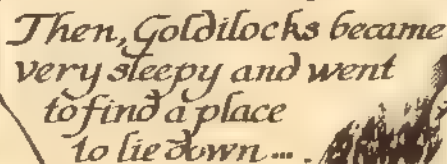 Then, Goldilocks became
very sleepy and went
to find a place
to lie down...